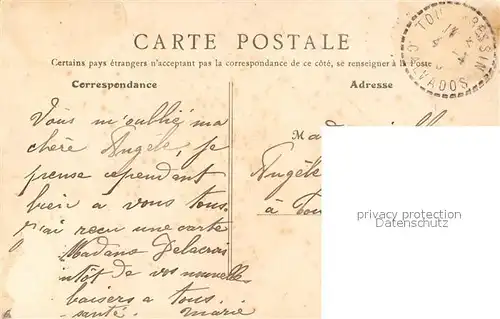 CARTE POSTALE
Certains pays étrangers n'acceptant pas la correspondance de ce côté, se renseigner à la Poste
Correspondance
Adresse
CALVADOS
Vous m'oublié ma
chère Angèle, je
pense cependant
bien a vous tous.
j'ai reçu une carte
Madame Delacroix
intôt de vos nouvelles
baisers a tous.
santé. Marie
M
Angèle
à
privacy protection
Datenschutz